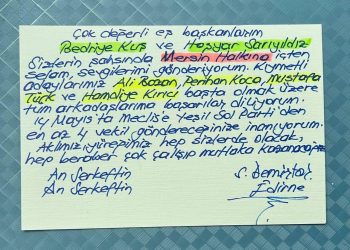 Çok değerli eş başkanlarım
Bedriye Kuş ve Hoşyar Sarıyıldız
Sizlerin şahsında Mersin Halkına içten
selam, sevgilerimi gönderiyorum. Kıymetli
adaylarımız Ali Bozan, Perihan Koca, Mustafa
Türk ve Handiye Kirici başta olmak üzere
tüm arkadaşlarıma başarılar diliyorum.
14 Mayıs'ta Meclise Yeşil Sol Parti'den
en az 4 vekil göndereceğinize inanıyorum.
Aklımız, yüreğimiz hep sizlerde olacak,
hep beraber çok çalışıp mutlaka kazanacağız
An Serkeftin
An Serkeftin
S. Demirtaş
Edirne